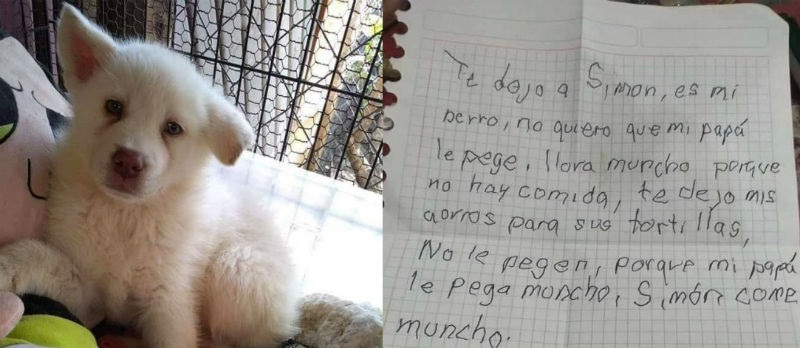 Te dejo a Simon, es mi
perro, no quiero que mi papá
le pege, llora muncho porque
no hay comida, te dejo mis
aorros para sus tortillas,
No le pegen, porque mi papá
le pega muncho, Simón come
muncho.